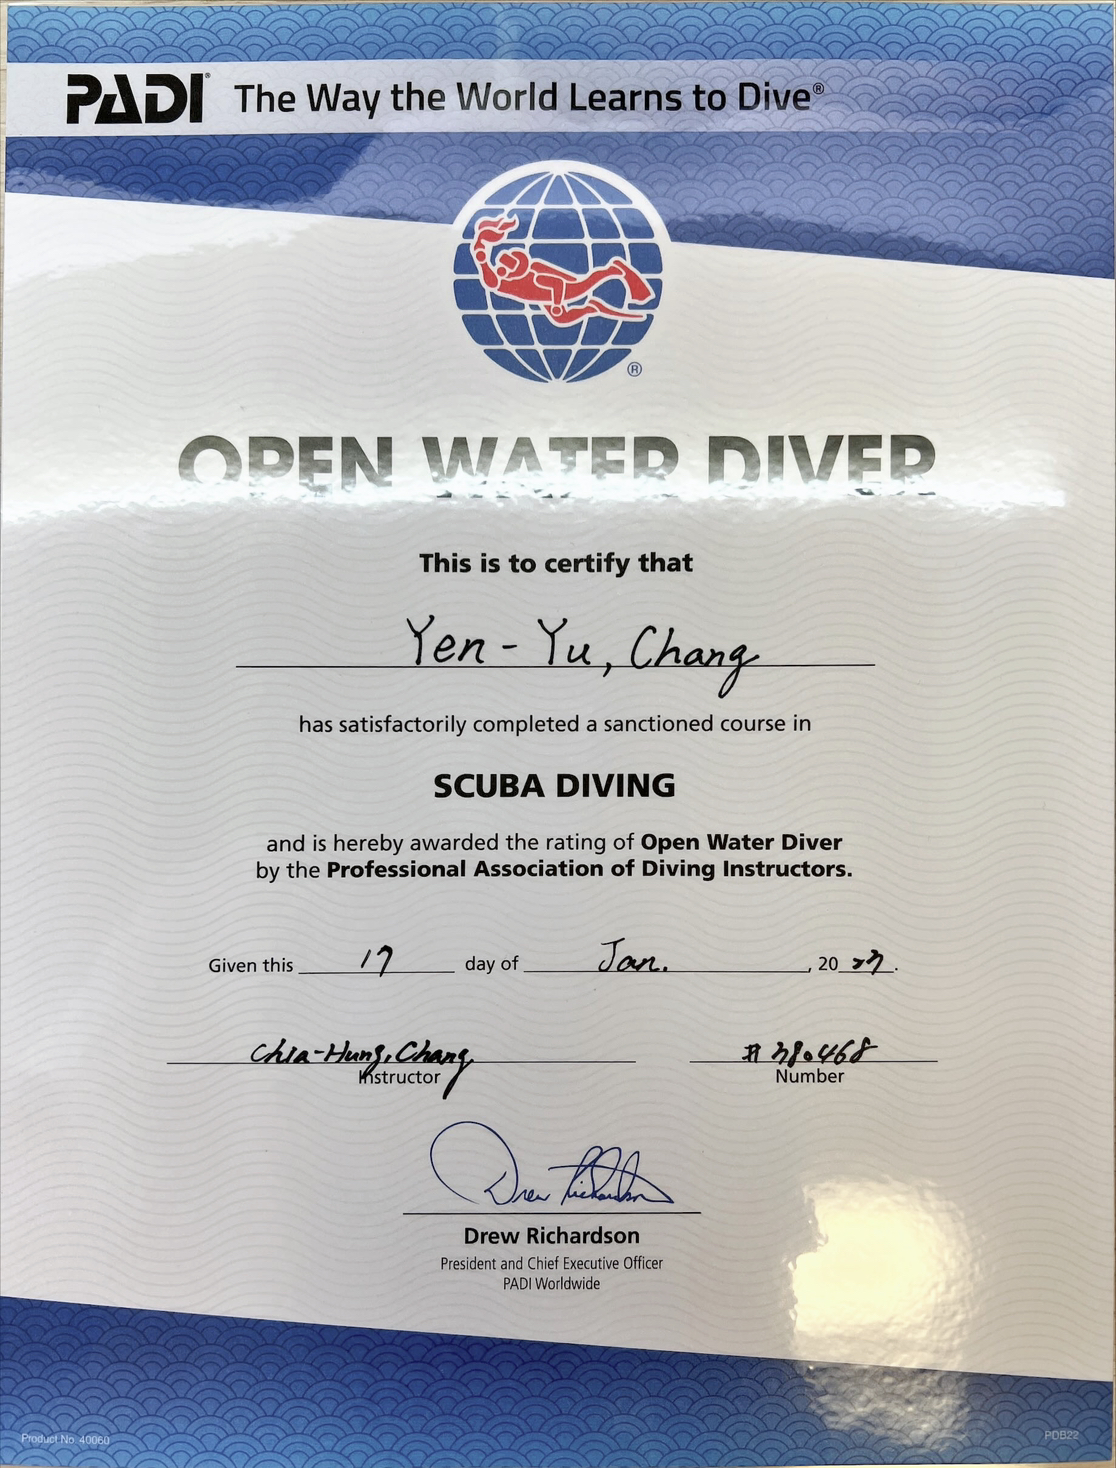 PADI® The Way the World Learns to Dive®
®
OPEN WATER DIVER
This is to certify that
Yen-Yu, Chang
has satisfactorily completed a sanctioned course in
SCUBA DIVING
and is hereby awarded the rating of Open Water Diver
by the Professional Association of Diving Instructors.
Given this 17 day of Jan. , 20 .
Chia-Hung, Chang
Instructor
Number
Drew Richardson
Drew Richardson
President and Chief Executive Officer
PADI Worldwide
Product No. 40060
PDB22